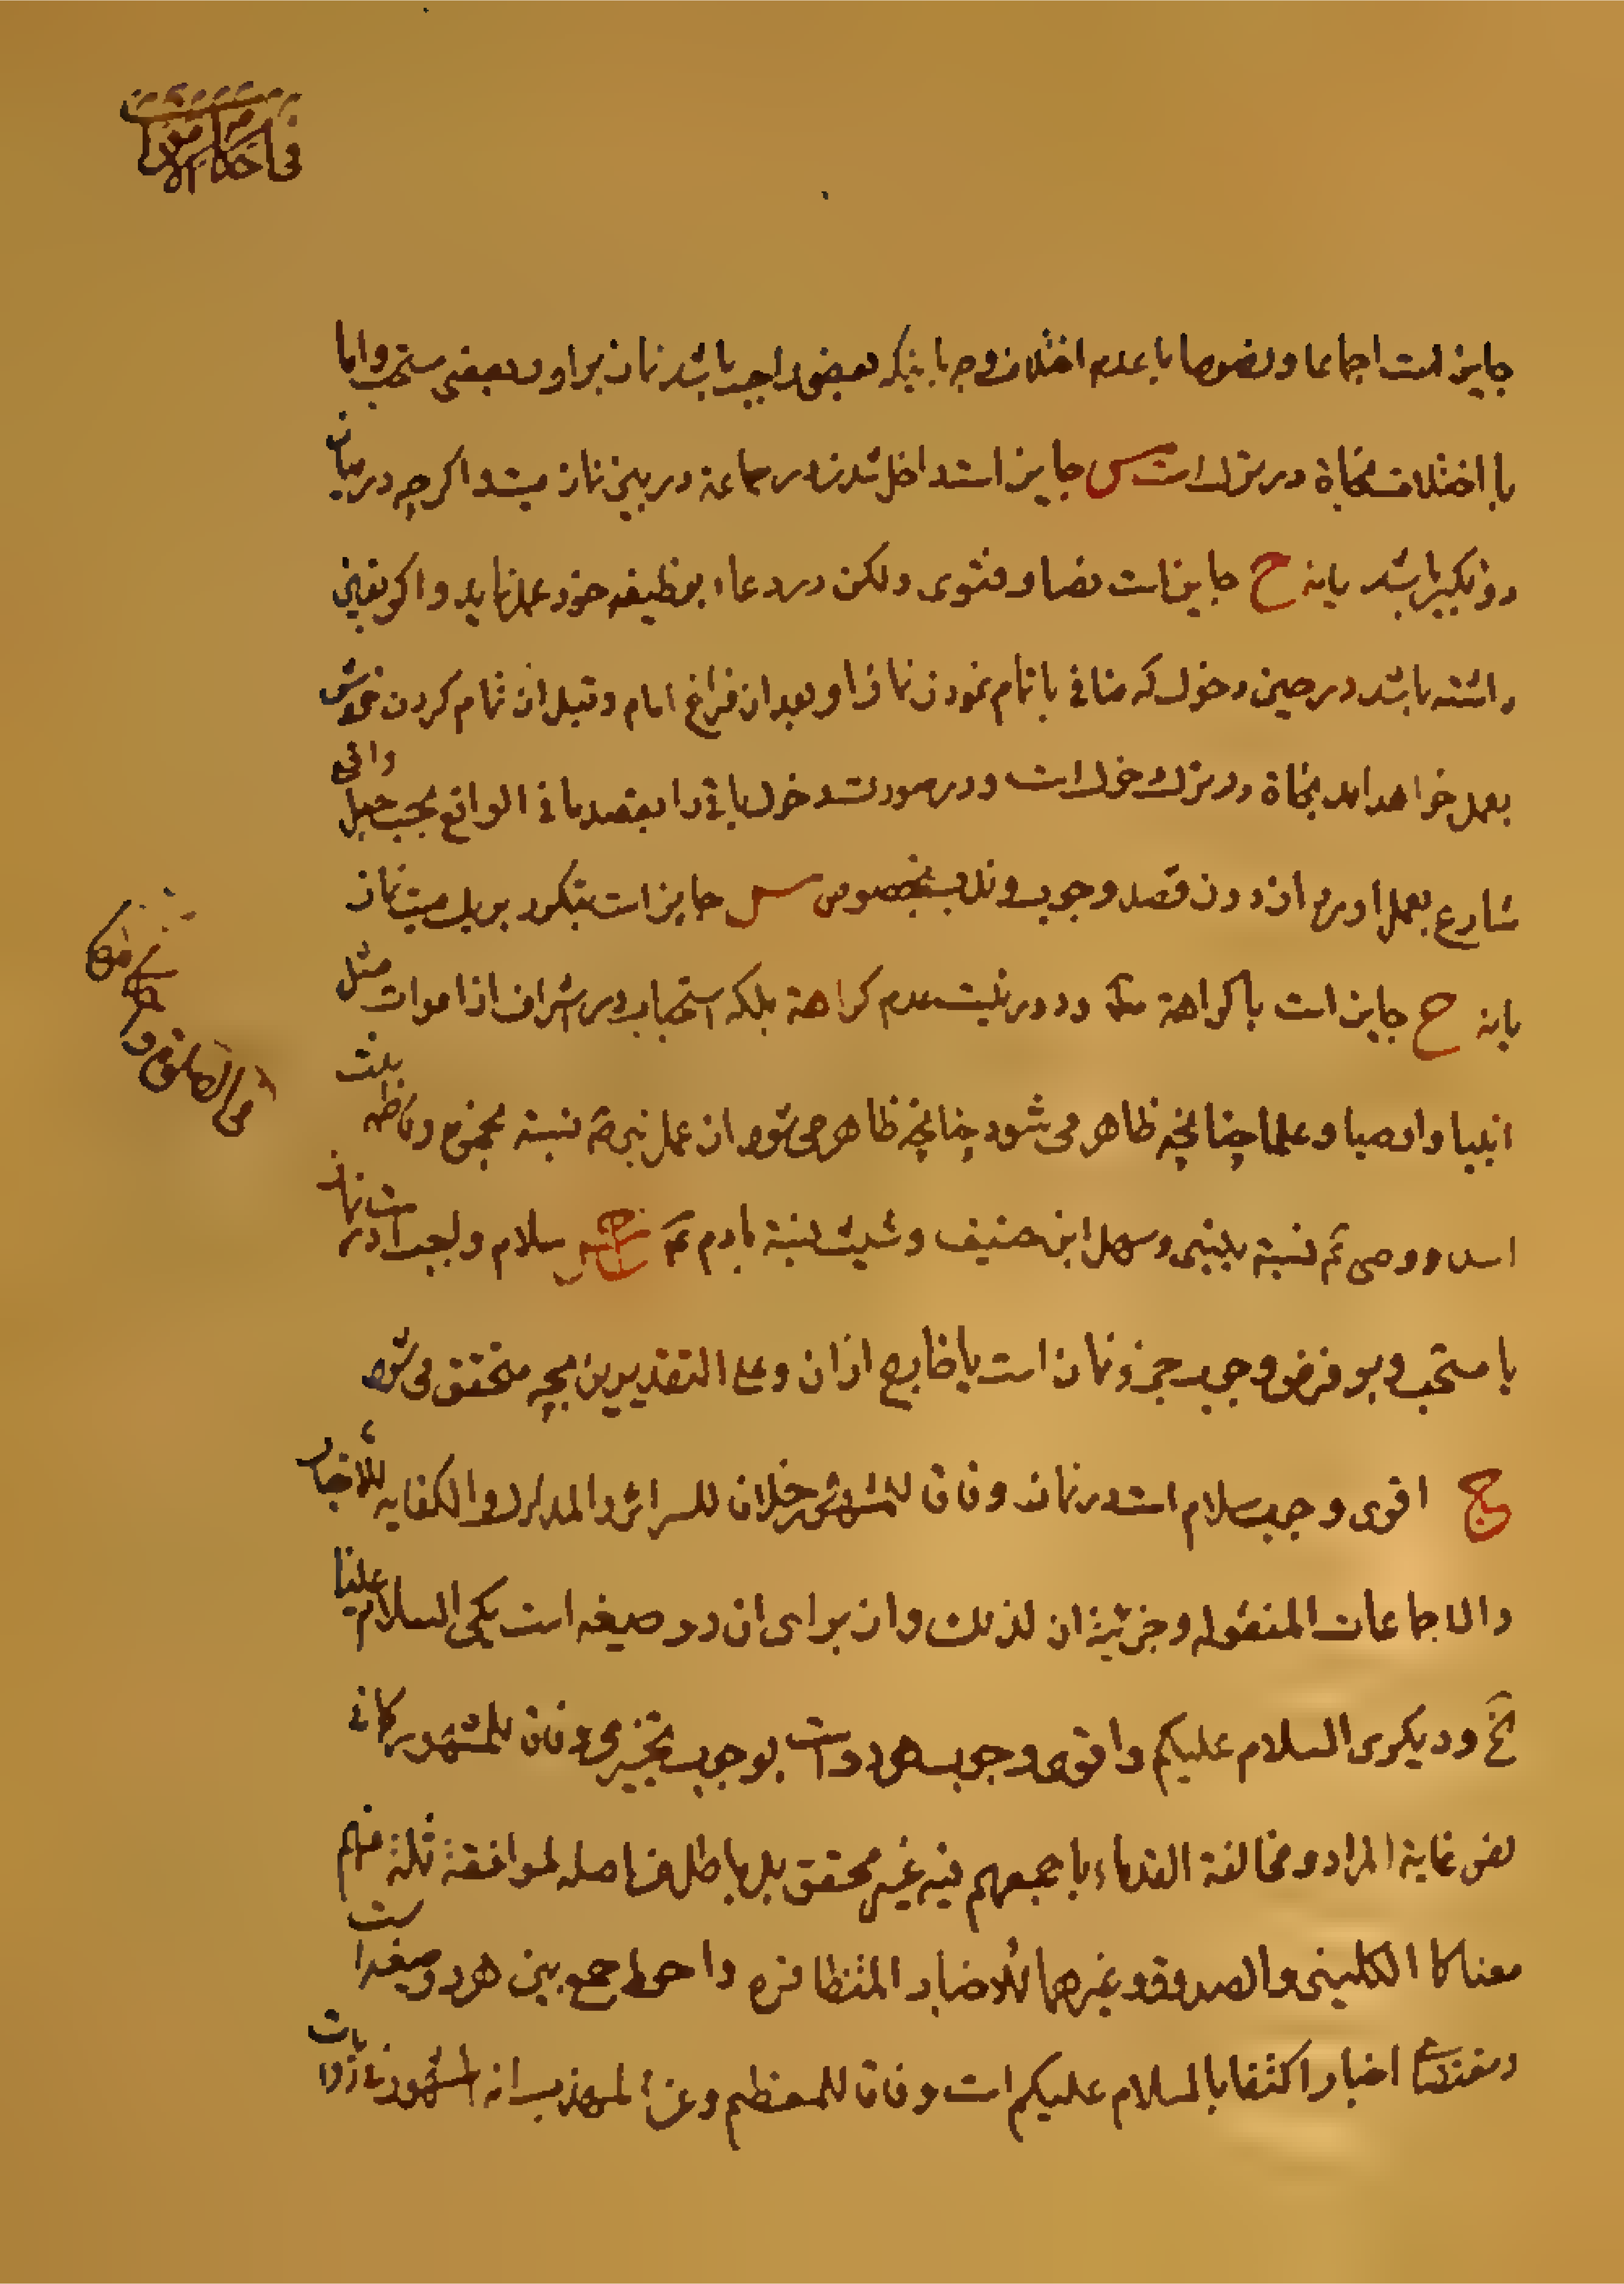 فی احکام الاموات
جایز است اجماعا و نصوصا با عدم اختلاف وجه باینکه بعضی واجب باشد نماز بر او و بعضی مستحب و اما
با اختلاف نجاة در ترک است س جایز است داخل شدن در جماعة در بین نماز میت و اگرچه در میان
دو تکبیر باشد یا نه ح جایز است نصا و فتوی ولکن در دعاء بوظیفه خود عمل نماید و اگر یقین
داشته باشد در حین دخول که منافی با تمام نمودن نماز او بعد از فراغ امام و قبل از تمام کردن خودش
بعمل خواهد امد نجاة در ترک دخول است و در صورت دخول باقی را بقصد ما فی الواقع بحسب جعل واقعی
شارع بعمل اورد از دون قصد وجوب و ندب بخصوص س جایز است تکرر بر یک میت نماز
یا نه ح جایز است با کراهة و دور نیست عدم کراهة بلکه استحباب در اشراف از اموات مثل
انبیا و اوصیا و علما چنانچه ظاهر می شود چنانچه ظاهر می شود از عمل نبی نسبة بحمزه و فاطمه بنت
اسد و وصی نسبة بنبی و سهل ابن حنیف و شیث نسبة بادم سلام واجب است در نماز
یا مستحب و بر فرض وجوب جزء نماز است یا خارج از ان و علی التقدیرین بچه متحقق می شود
ج اقوی وجوب سلام است در نماز وفاقا للمشهور خلافا للسرائر و المدارک و الکفایه للاخبار
و الاجماعات المنقوله و جزئیة ان لذلک و از برای ان دو صیغه است یکی السلام علینا
الخ و دیگری السلام علیکم و اقوی وجوب هر دو است بوجوب تخییری وفاقا للمشهور کما فی
نص غایة المراد و مخالفة القدماء باجمعهم فیه غیر محقق بل باطل من اصله لموافقة ثلثة منهم
معنا کالکلینی و الصدوق و غیرهما للاخبار المتظافره و احوط جمع بین هر دو صیغه است
و مقتضای اخبار اکتفا بالسلام علیکم است وفاقا للمعظم و عن المهذب انه المشهور
فی الصلوة و احکامها